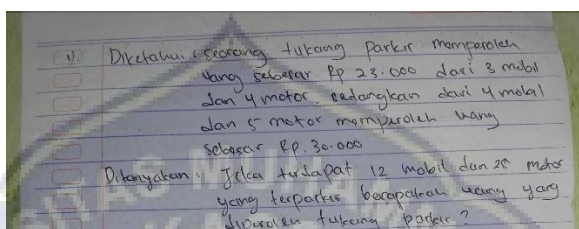 1). Diketahui : seorang tukang parkir memperoleh
uang sebesar Rp 23.000 dari 3 mobil
dan 4 motor. sedangkan dari 4 mobil
dan 5 motor memperoleh uang
sebesar Rp. 30.000
Ditanyakan : Jika terdapat 12 mobil dan 25 motor
yang terparkir berapakah uang yang
diperoleh tukang parkir ?